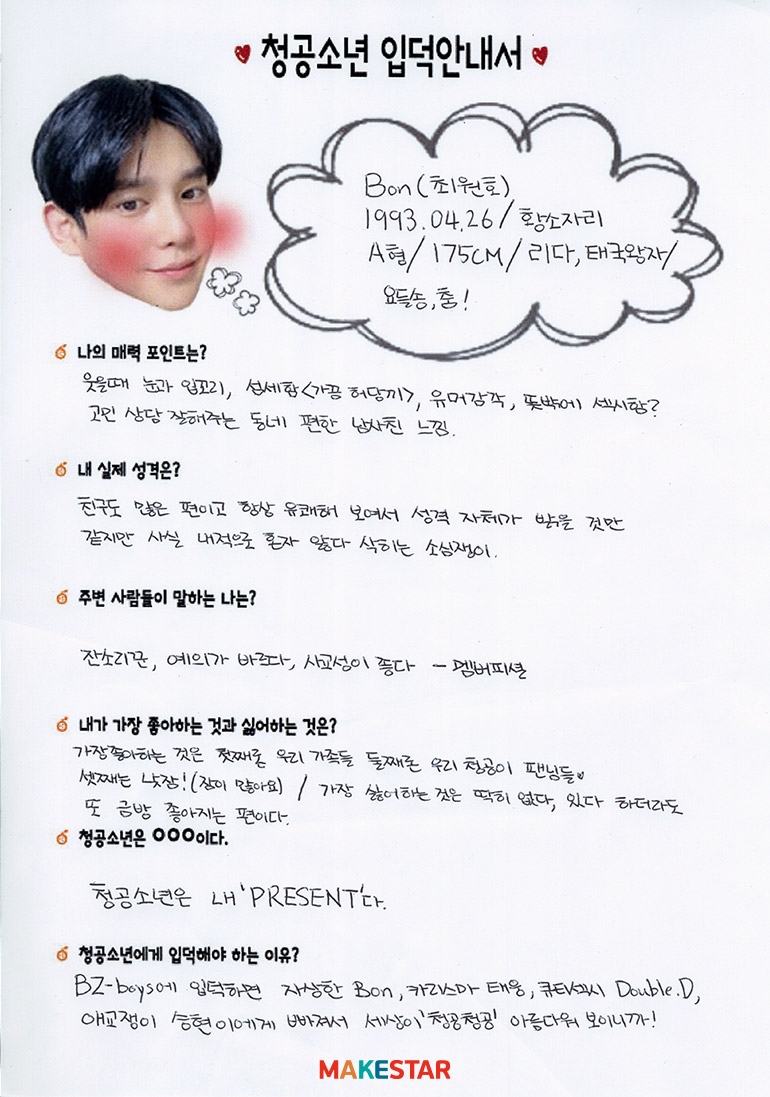 청공소년 입덕안내서
Bon(최원호)
1993.04.26/황소자리
A형/175CM/리다,태국왕자/
요들송,춤!
나의 매력 포인트는?
웃을때 눈과 입꼬리, 섬세함<가끔 허당끼>, 유머감각, 뜻밖에 섹시함?
고민 상담 잘해주는 동네 편한 남사친 느낌.
내 실제 성격은?
친구도 많은 편이고 항상 유쾌해 보여서 성격 자체가 밝을 것만
같지만 사실 내적으로 혼자 앓다 삭히는 소심쟁이.
주변 사람들이 말하는 나는?
잔소리꾼, 예의가 바르다, 사교성이 좋다 -멤버피셜
내가 가장 좋아하는 것과 싫어하는 것은?
가장좋아하는 것은 첫째론 우리 가족들 둘째론 우리 청공이 팬님들♥
셋째는 낮잠!(잠이 많아요) / 가장 싫어하는 것은 딱히 없다, 있다 하더라도
또 금방 좋아지는 편이다.
청공소년은 OOO이다.
청공소년은 내 'PRESENT'다.
청공소년에게 입덕해야 하는 이유?
BZ-boys에 입덕하면 자상한 Bon, 카리스마 태웅, 큐티섹시 Double.D,
애교쟁이 승현이에게 빠져서 세상이 '청공청공' 아름다워 보이니까!
MAKESTAR